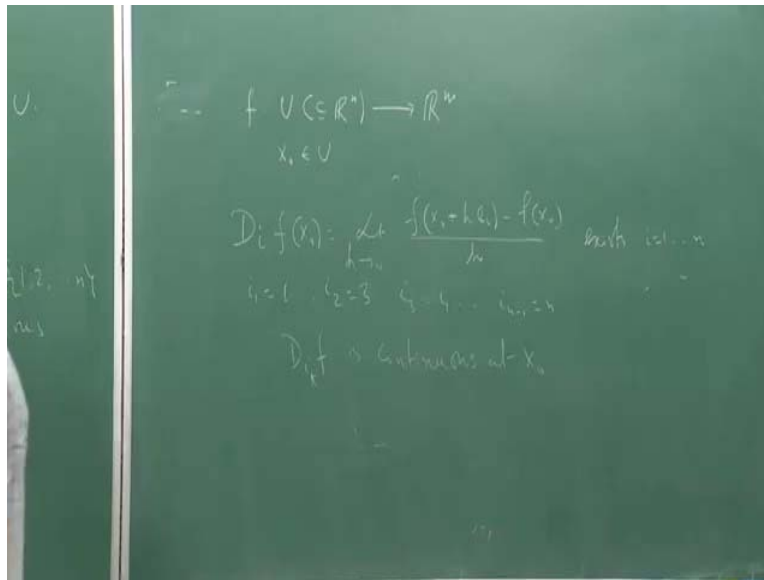 U.
f U (⊆ ℝⁿ) ⟶ ℝᵐ
x₀ ∈ U
Dᵢ f(x₀) = Lt h→0 (f(x₀ + h eᵢ) - f(x₀)) / h exists i=1...n
{1,2, ... n}
i₁ = 1 i₂ = 3 i₃ = 4 ... iₙ₋₁ = n
Dᵢₖ f is continuous at x₀